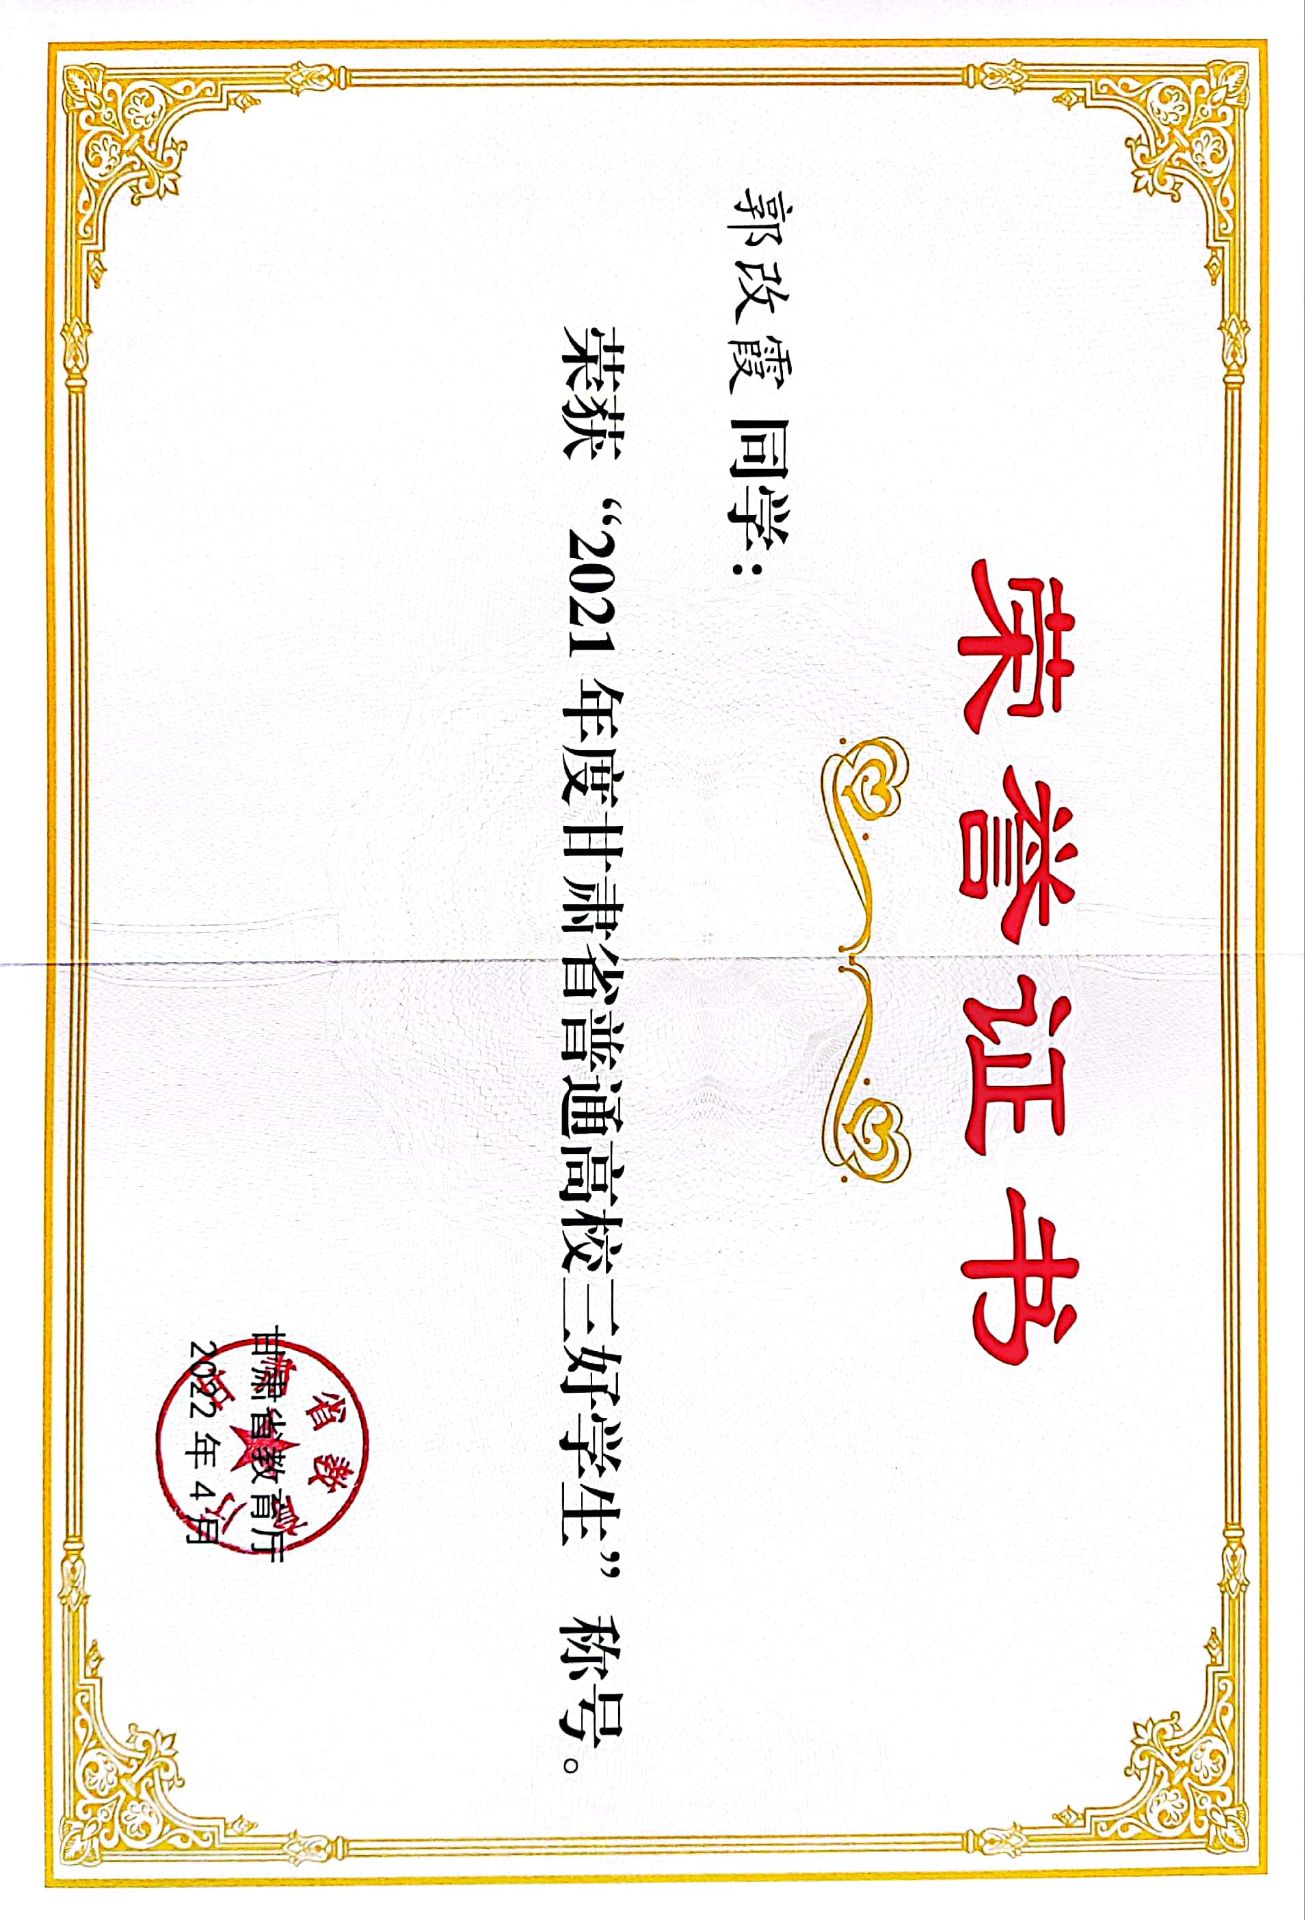 荣誉证书
郭改霞同学：
荣获“2021年度甘肃省普通高校三好学生”称号。
甘肃省教育厅
2022年4月
甘肃省教育厅